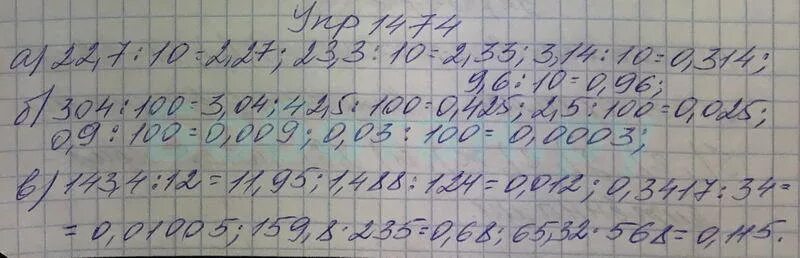 Упр 1474
а) 22,7 : 10 = 2,27; 23,3 : 10 = 2,33; 3,14 : 10 = 0,314;
9,6 : 10 = 0,96;
б) 304 : 100 = 3,04; 42,5 : 100 = 0,425; 2,5 : 100 = 0,025;
0,9 : 100 = 0,009; 0,03 : 100 = 0,0003;
в) 143,4 : 12 = 11,95; 1,488 : 124 = 0,012; 0,3417 : 34 =
= 0,01005; 159,8 : 235 = 0,68; 65,32 : 568 = 0,115.